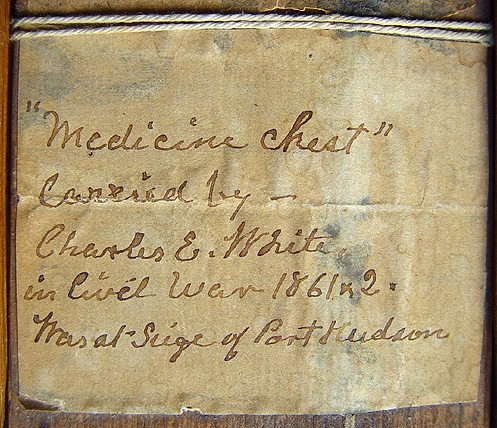 "Medicine Chest"
Carried by —
Charles E. White.
in Civil War 1861 & 2.
Was at Siege of Port Hudson